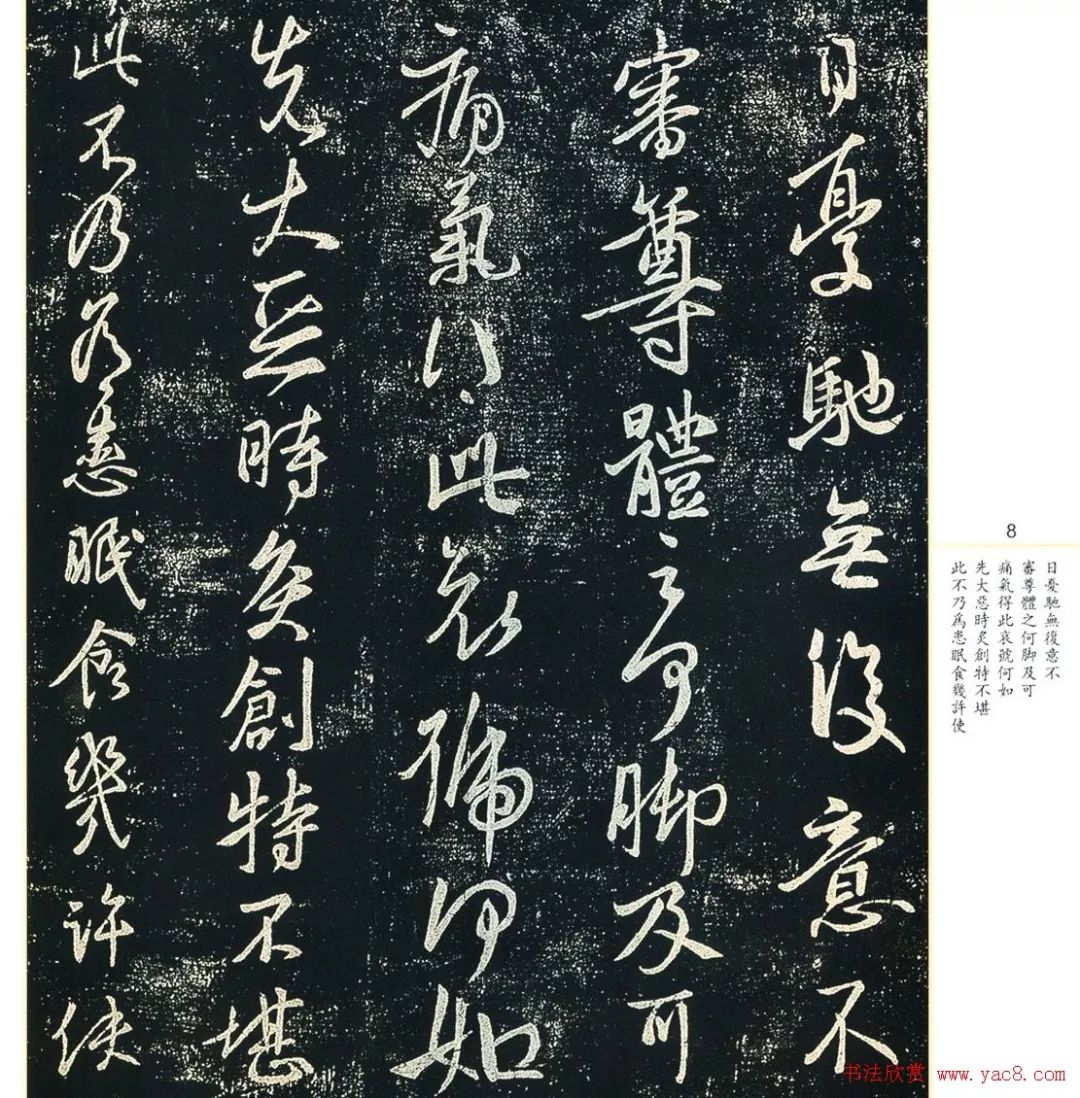 日憂馳無復意不
審尊體之何脚及可
痛氣得此哀號何如
先大惡時灸創特不堪
此不乃為患眠食幾許使
8
日憂馳無復意不
審尊體之何脚及可
痛氣得此哀號何如
先大惡時灸創特不堪
此不乃爲患眠食幾許使
书法欣赏 www.yac8.com